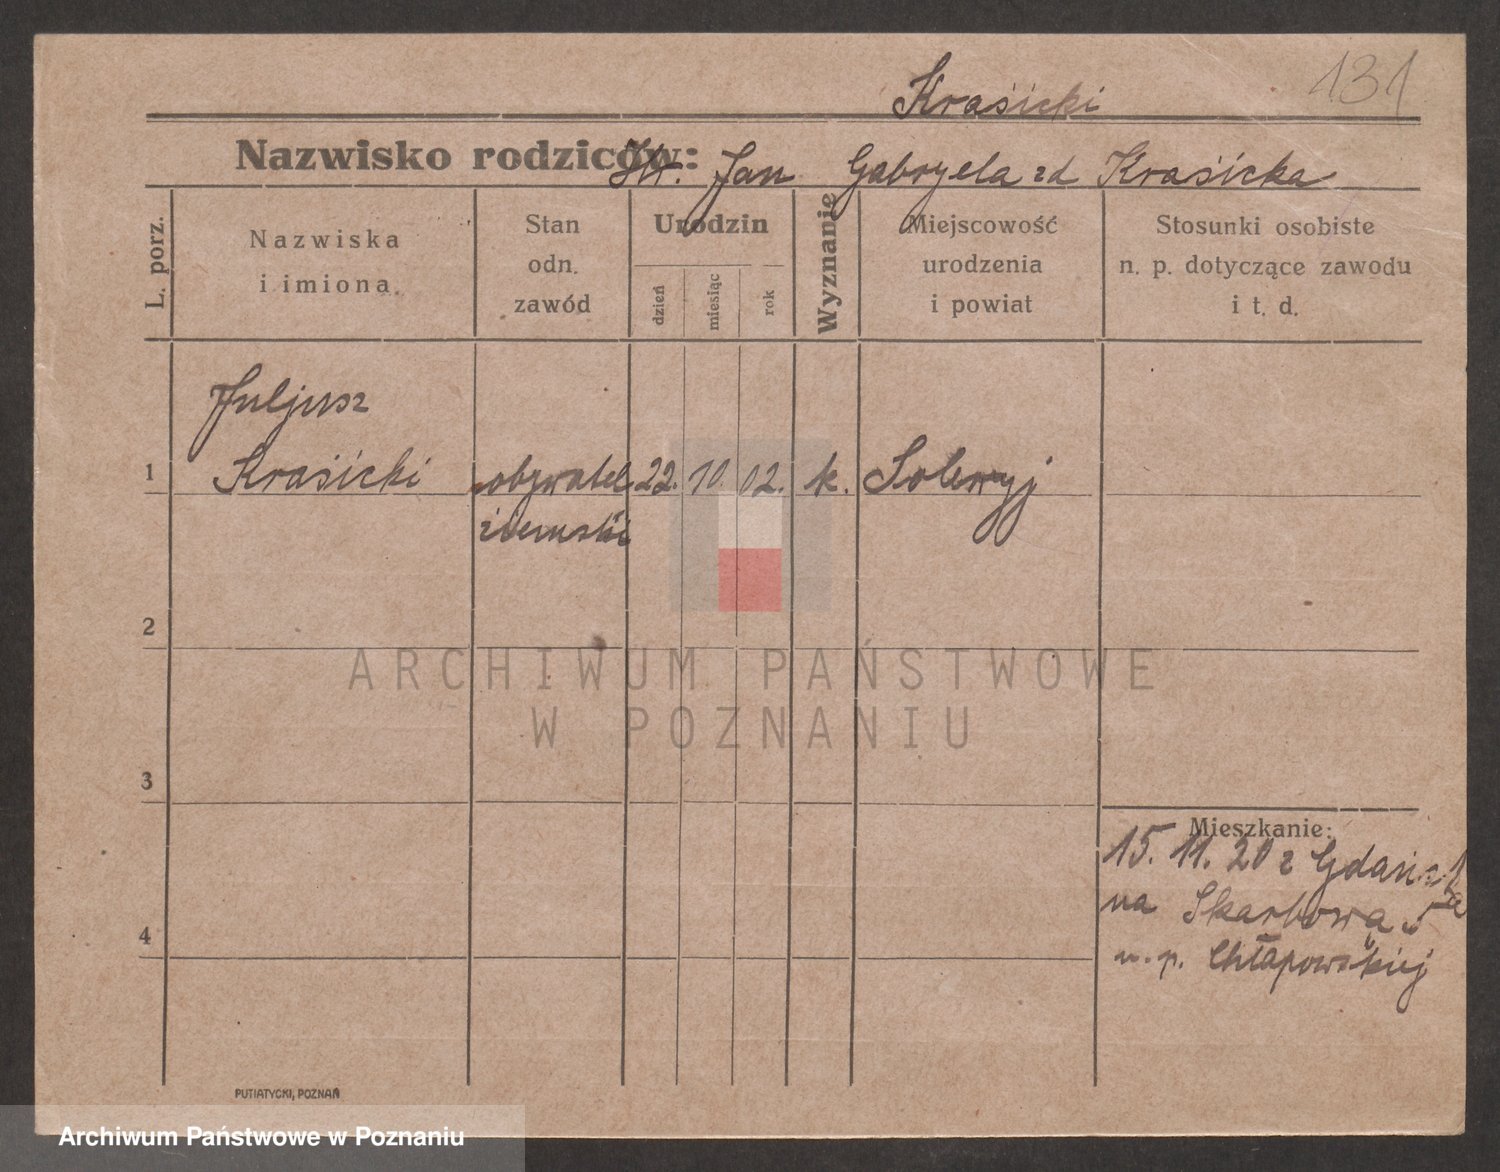 131
Kraśicki
Nazwisko rodziców: Hr. Jan Gabryela zd Kraśicka
L. porz.
Nazwiska
i imiona.
Stan
odn.
zawód
Urodzin
dzień
miesiąc
rok
Wyznanie
Miejscowość
urodzenia
i powiat
Stosunki osobiste
n. p. dotyczące zawodu
i t. d.
Juljusz
1 Kraśicki obywatel 22. 10. 02. k.
ziemski
2
ARCHIWUM PAŃSTWOWE
W POZNANIU
3
Mieszkanie:
15. 11. 20 z Gdańska
na Skarbową 5
4
u. p. Chłapowskiej
PUTIATYCKI, POZNAŃ
Archiwum Państwowe w Poznaniu